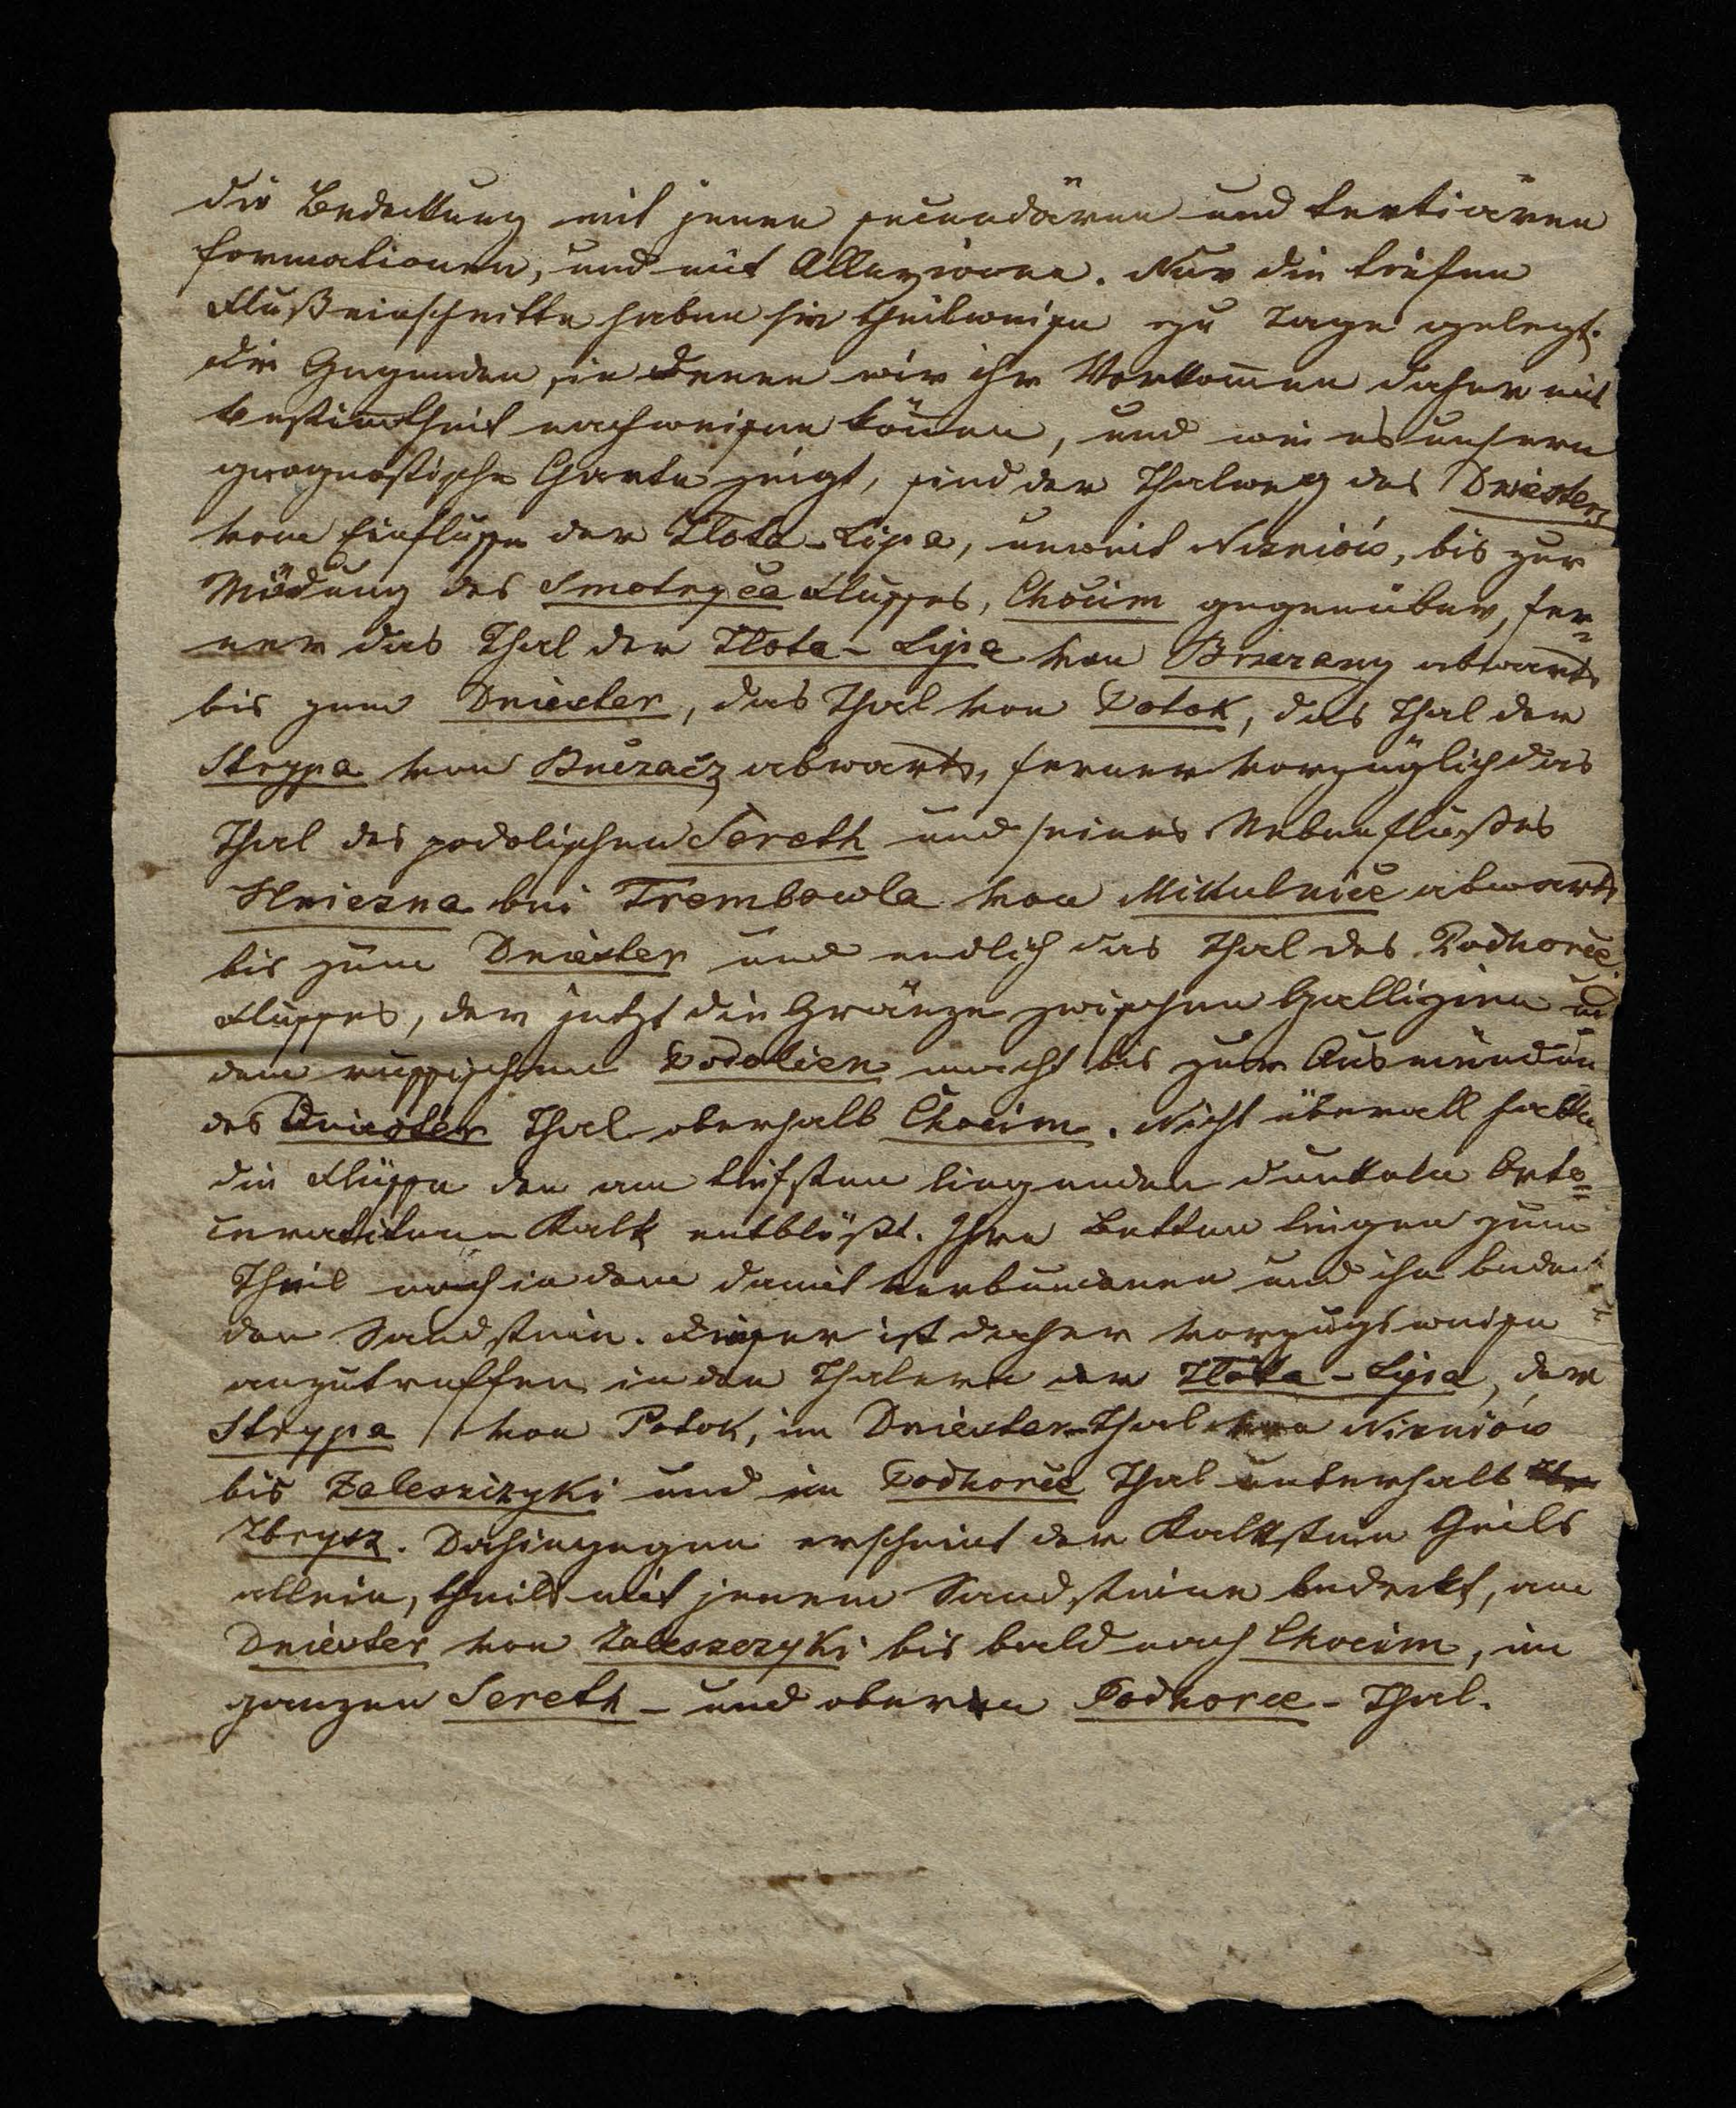 die Bedekkung mit jenen secundären und tertiären
Formationen, und mit Alluvionen. Nur die tiefen
Flußeinschnitte haben sie theilweise zu Tage gelegt.
die Gegenden, in denen wir ihr Vorkom̅en daher mit
Bestim̅theit nachweisen kön̅en, und wie es unsern
geognostische Charte zeigt, sind der Thalweg des Dniesters
vom Einflusse der Zlota-Lipa, unweit Nizniów, bis zur
Mündung des Smotryca Flusses, Chocim gegenüber, fer=
ner das Thal der Zlota-Lipa von Brzezany abwärts
bis zum Dniester, das Thal von Potok, das Thal der
Strypa von Buczacz abwärts, ferner vorzüglich das
Thal des podolischen Sereth und seines Nebenflußes
Hniezna bei Trembowla von Mikulnice abwärts
bis zum Dniester und endlich das Thal des Podhorce
Flusses, der jetzt die Gränze zwischen Gallizien und
dem russischen Podolien macht bis zur Ausmündun
des Dniester Thal oberhalb Chocim. Nicht überall hatte
die Flüsse den am tiefsten liegenden dunkeln Orto=
ceratiten Kalk entblößt. Ihre Betten liegen zum
Theil noch in dem damit verbundenen und ihn bedec
den Sandstein. Dieser ist daher vorzugsweise
anzutreffen in den Thälern der Zlota-Lipa, der
Strypa, von Potok, im Dniester-Thal von Nizniów
bis Zaleszczyki und im Podhorce Thal unterhalb
Zbrycz. Dahingegen erscheint der Kalkstein theils
allein, theils mit jenem Sandsteine bedeckt, am
Dniester von Zaleszczyki bis bald nach Chocim, im
ganzen Sereth- und oberen Podhorce-Thal.